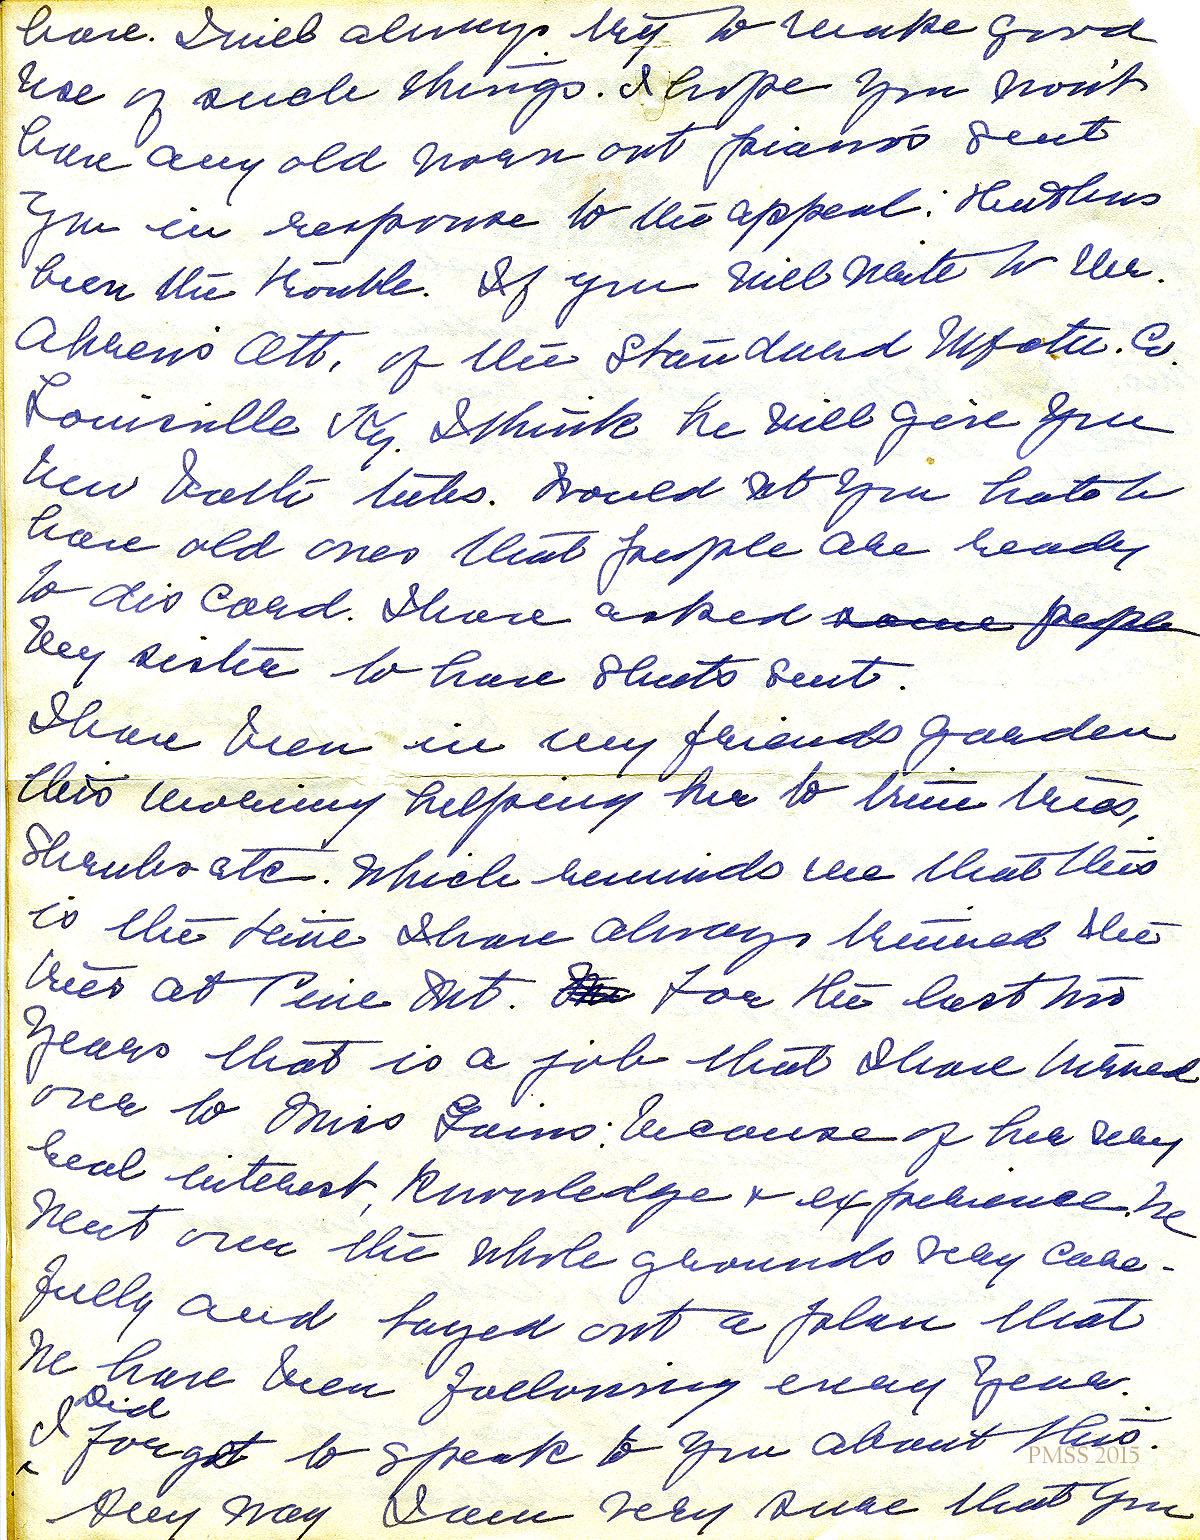 have. I will always try to make good
use of such things. I hope you won't
have any old worn out pianos sent
you in response to the appeal: that has
been the trouble. If you will write to Mr.
Ahrens Att. of the Standard Mfctu. Co.
Louisville Ky. I think he will give you
new bath tubs. Would n't you hate to
have old ones that people are ready
to discard. I have asked some people
my sister to have sheets sent.
I have been in my friends garden
this morning helping her to trim trees,
shrubs etc. Which reminds me that this
is the time I have always trimed the
trees at Pine Mt. For the last two
years that is a job that I have turned
over to Miss Gains: because of her very
real interest, knowledge & experience. We
went over the whole grounds very care-
fully and layed out a plan that
we have been following every year.
I did forget to speak to you about this.
Any way I am very sure that you
PMSS 2015